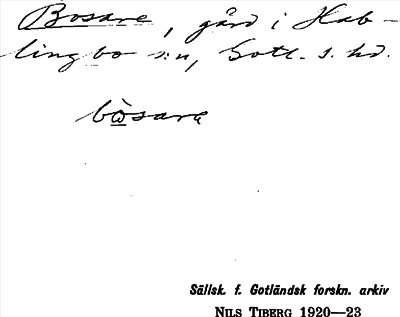 Bosare, gård i Hab-
lingbo s:n, Gotl. s. hd.
bòsarę
Sällsk. f. Gotländsk forskn. arkiv
NILS TIBERG 1920—23